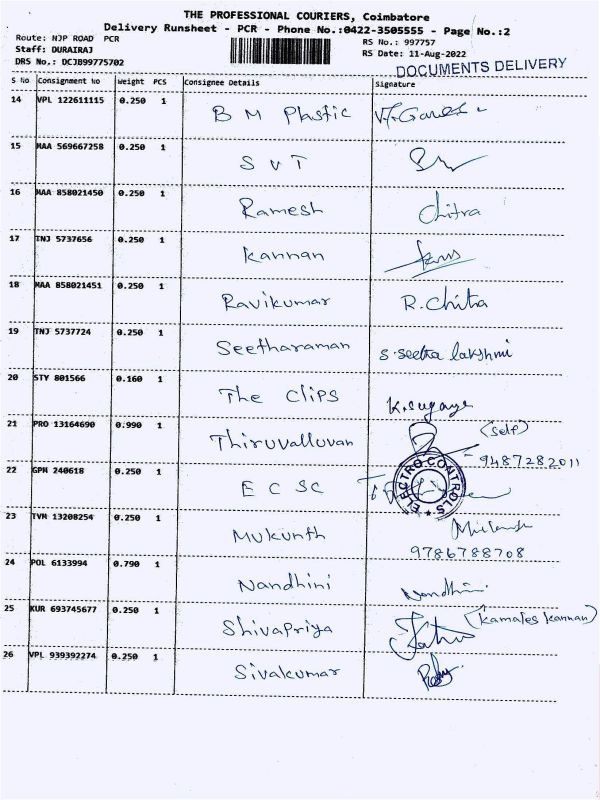 THE PROFESSIONAL COURIERS, Coimbatore
Delivery Runsheet - PCR - Phone No.:0422-3505555 - Page No.:2
Route: NJP ROAD PCR
RS No.: 997757
Staff: DURAIRAJ
RS Date: 11-Aug-2022
DRS No.: DCJB99775702
DOCUMENTS DELIVERY
S No Consignment No Weight PCS Consignee Details Signature
14 VPL 122611115 0.250 1 B M Plastic
15 MAA 569667258 0.250 1 S V T
16 MAA 858021450 0.250 1 Ramesh Chitra
17 TNJ 5737656 0.250 1 Kannan
18 MAA 858021451 0.250 1 Ravikumar R. Chitra
19 TNJ 5737724 0.250 1 Seetharaman S. Seetha lakshmi
20 STY 801566 0.160 1 The Clips K. Sugaya
21 PRO 13164690 0.990 1 Thiruvalluvan (Self)
9487282011
22 GPM 240618 0.250 1 E C SC
ELECTRO CONTROLS
23 TVM 13208254 0.250 1 Mukunth
9786788708
24 POL 6133994 0.790 1 Nandhini Nandhini
25 KUR 693745677 0.250 1 ShivaPriya (Kamales kannan)
26 VPL 939392274 0.250 1 Sivakumar